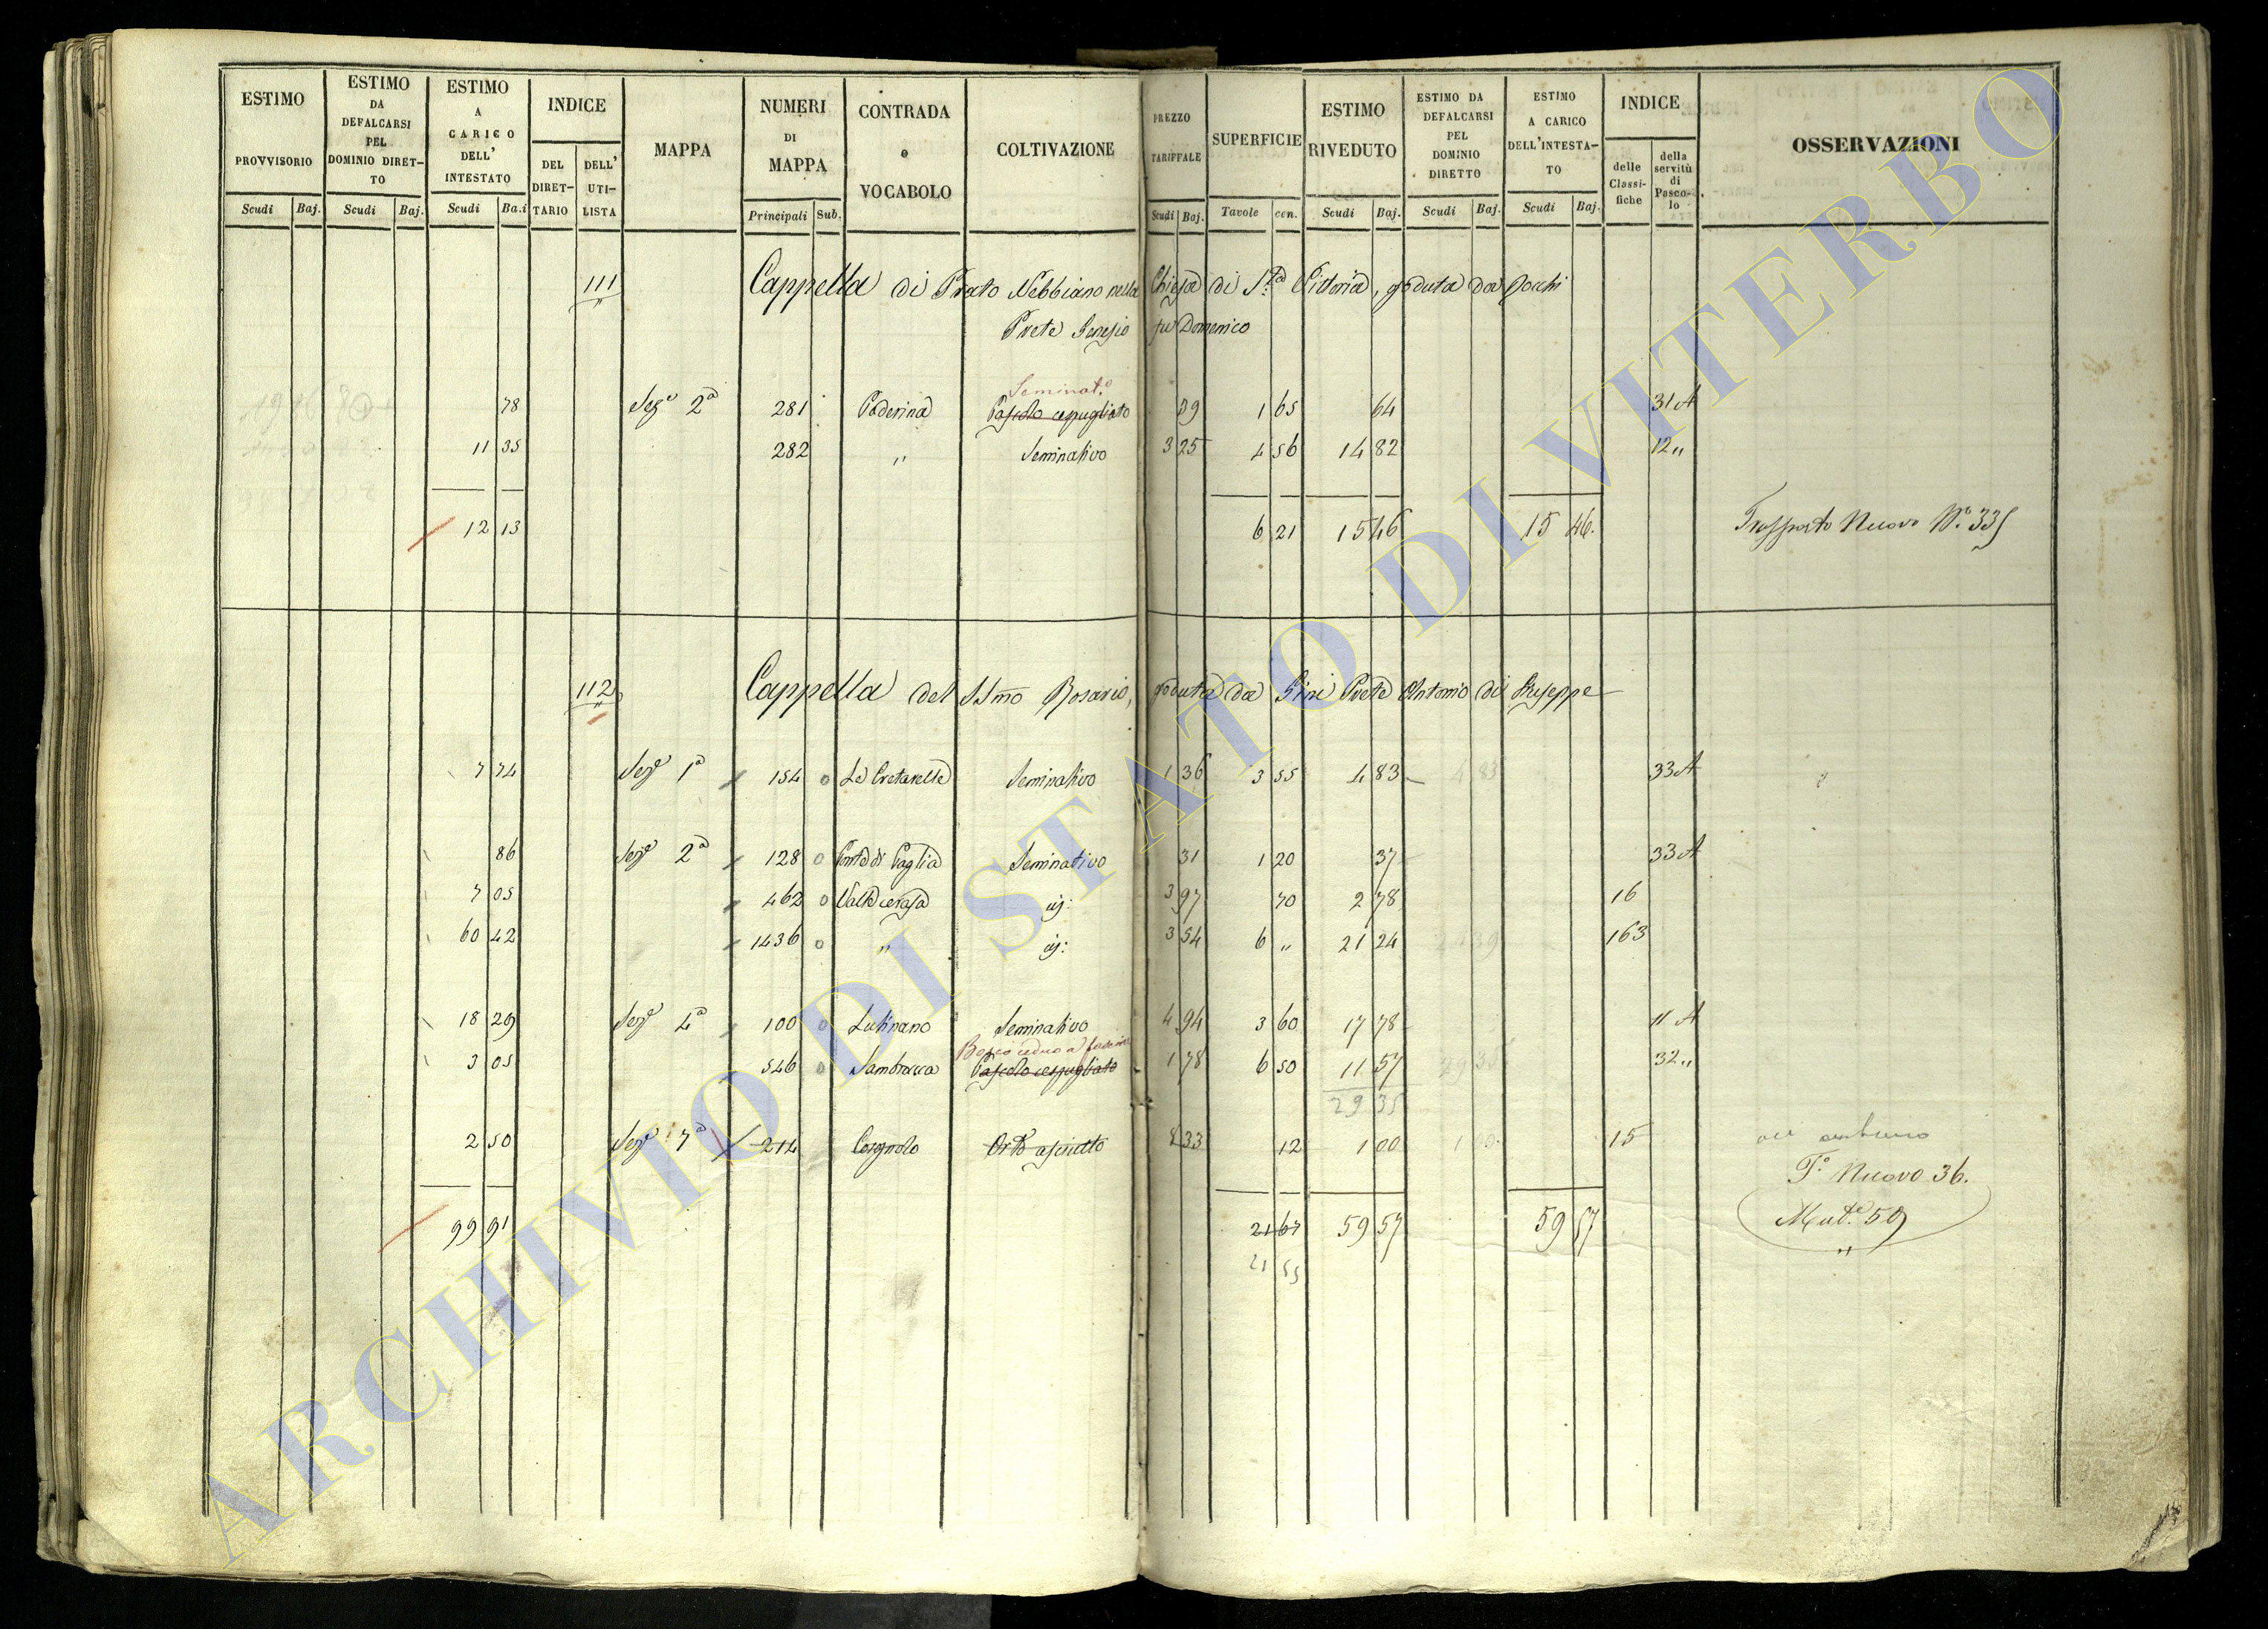 ESTIMO PROVVISORIO
Scudi Baj.
ESTIMO DA DEFALCARSI PEL DOMINIO DIRET-TO
Scudi Baj.
ESTIMO A CARICO DELL' INTESTATO
Scudi Ba.i
INDICE
DEL DIRET-TARIO
DELL' UTI-LISTA
MAPPA
NUMERI DI MAPPA
Principali Sub.
CONTRADA o VOCABOLO
COLTIVAZIONE
PREZZO TARIFFALE
Scudi Baj.
SUPERFICIE
Tavole cen.
ESTIMO RIVEDUTO
Scudi Baj.
ESTIMO DA DEFALCARSI PEL DOMINIO DIRETTO
Scudi Baj.
ESTIMO A CARICO DELL'INTESTA-TO
Scudi Baj.
INDICE
delle Classi-fiche
della servitù di Pasco-lo
OSSERVAZIONI
111 Cappella di Prato Nebbiano nella Chiesa di S.ta Vittoria, goduta da Jocchi
Prete Genesio fu Domenico
Seminat.o
78 Sez.e 2a 281 Poderina Pascolo cespugliato 39 1 65 64 31 A
11 35 282 " Seminativo 3 25 4 56 14 82 12 "
12 13 6 21 15 46 15 46. Trasporto Nuovo N.o 335
112 Cappella del SSmo Rosario, goduta da Gini Prete Antonio di Giuseppe
7 74 Sez.e 1a 154 0 Le Cretarelle Seminativo 1 36 3 55 4 83 4 83 33 A
86 Sez.e 2a 128 0 Ponte di Paglia Seminativo 31 1 20 37 33 A
7 05 462 0 Valle cerasa 3 97 70 2 78 16
60 42 1436 0 " 3 54 6 " 21 24 163
18 29 Sez.e 4a 100 0 Lutinano Seminativo 4 94 3 60 17 78 11 A
Bosco ceduo
3 05 546 0 Sambucca Pascolo cespugliato 1 78 6 50 11 57 29 35 32 "
29 35
2 50 Sez.e 7a 214 Corgnolo Orto asciutto 8 33 12 1 00 1 00 15
T.o Nuovo 36.
99 91 21 67 59 57 59 57 Mut.e 59
21 55 "
ARCHIVIO DI STATO DI VITERBO